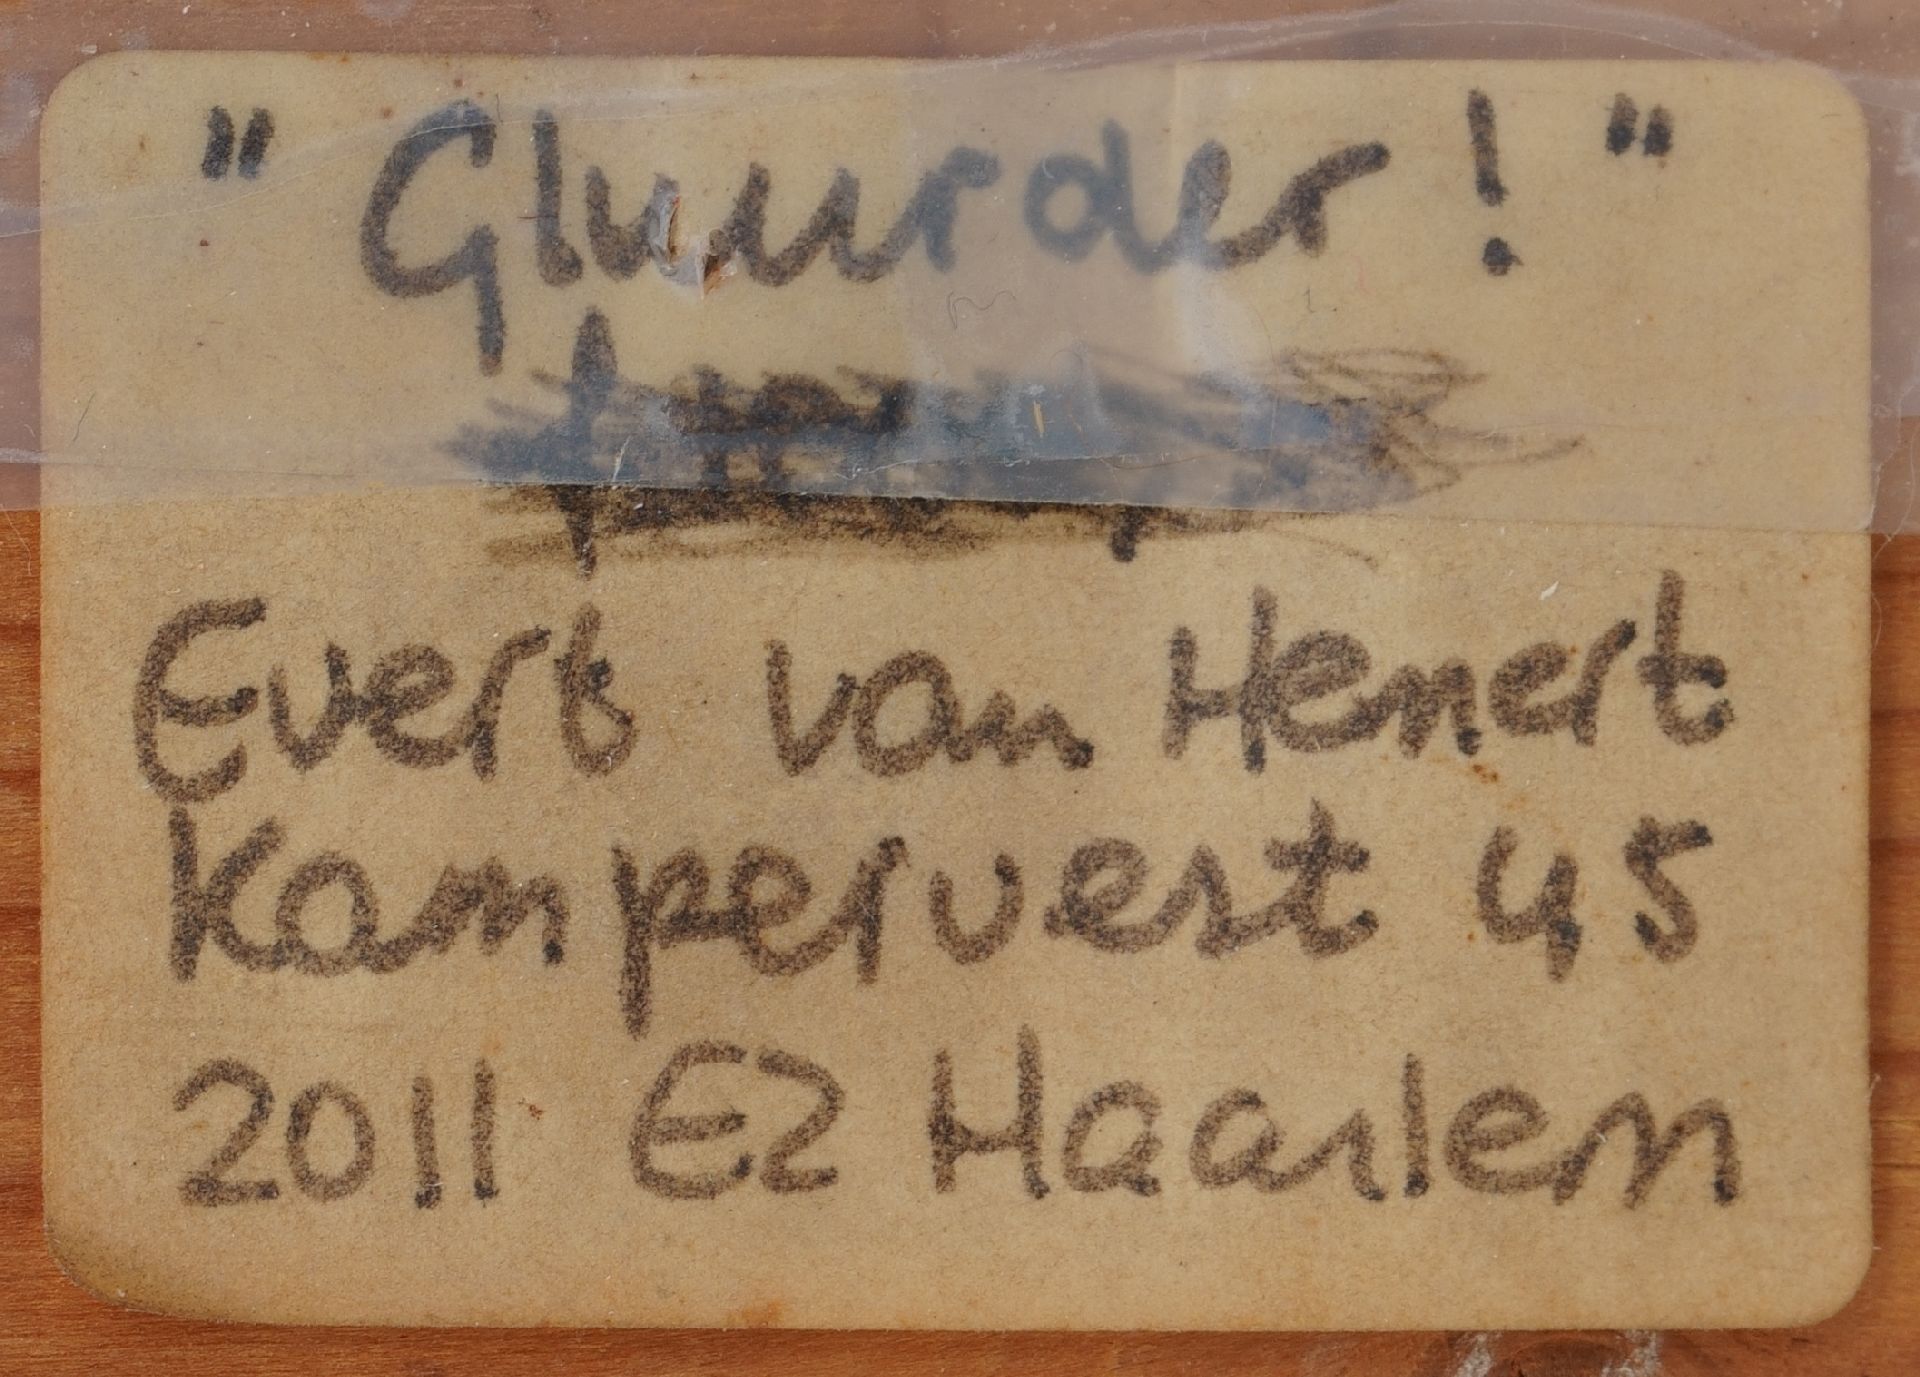 "Gluurder!"
Evert van Hemert
Kampervest 45
2011 EZ Haarlem